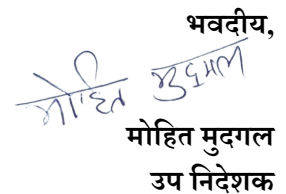 भवदीय,
मोहित मुदगल
मोहित मुदगल
उप निदेशक